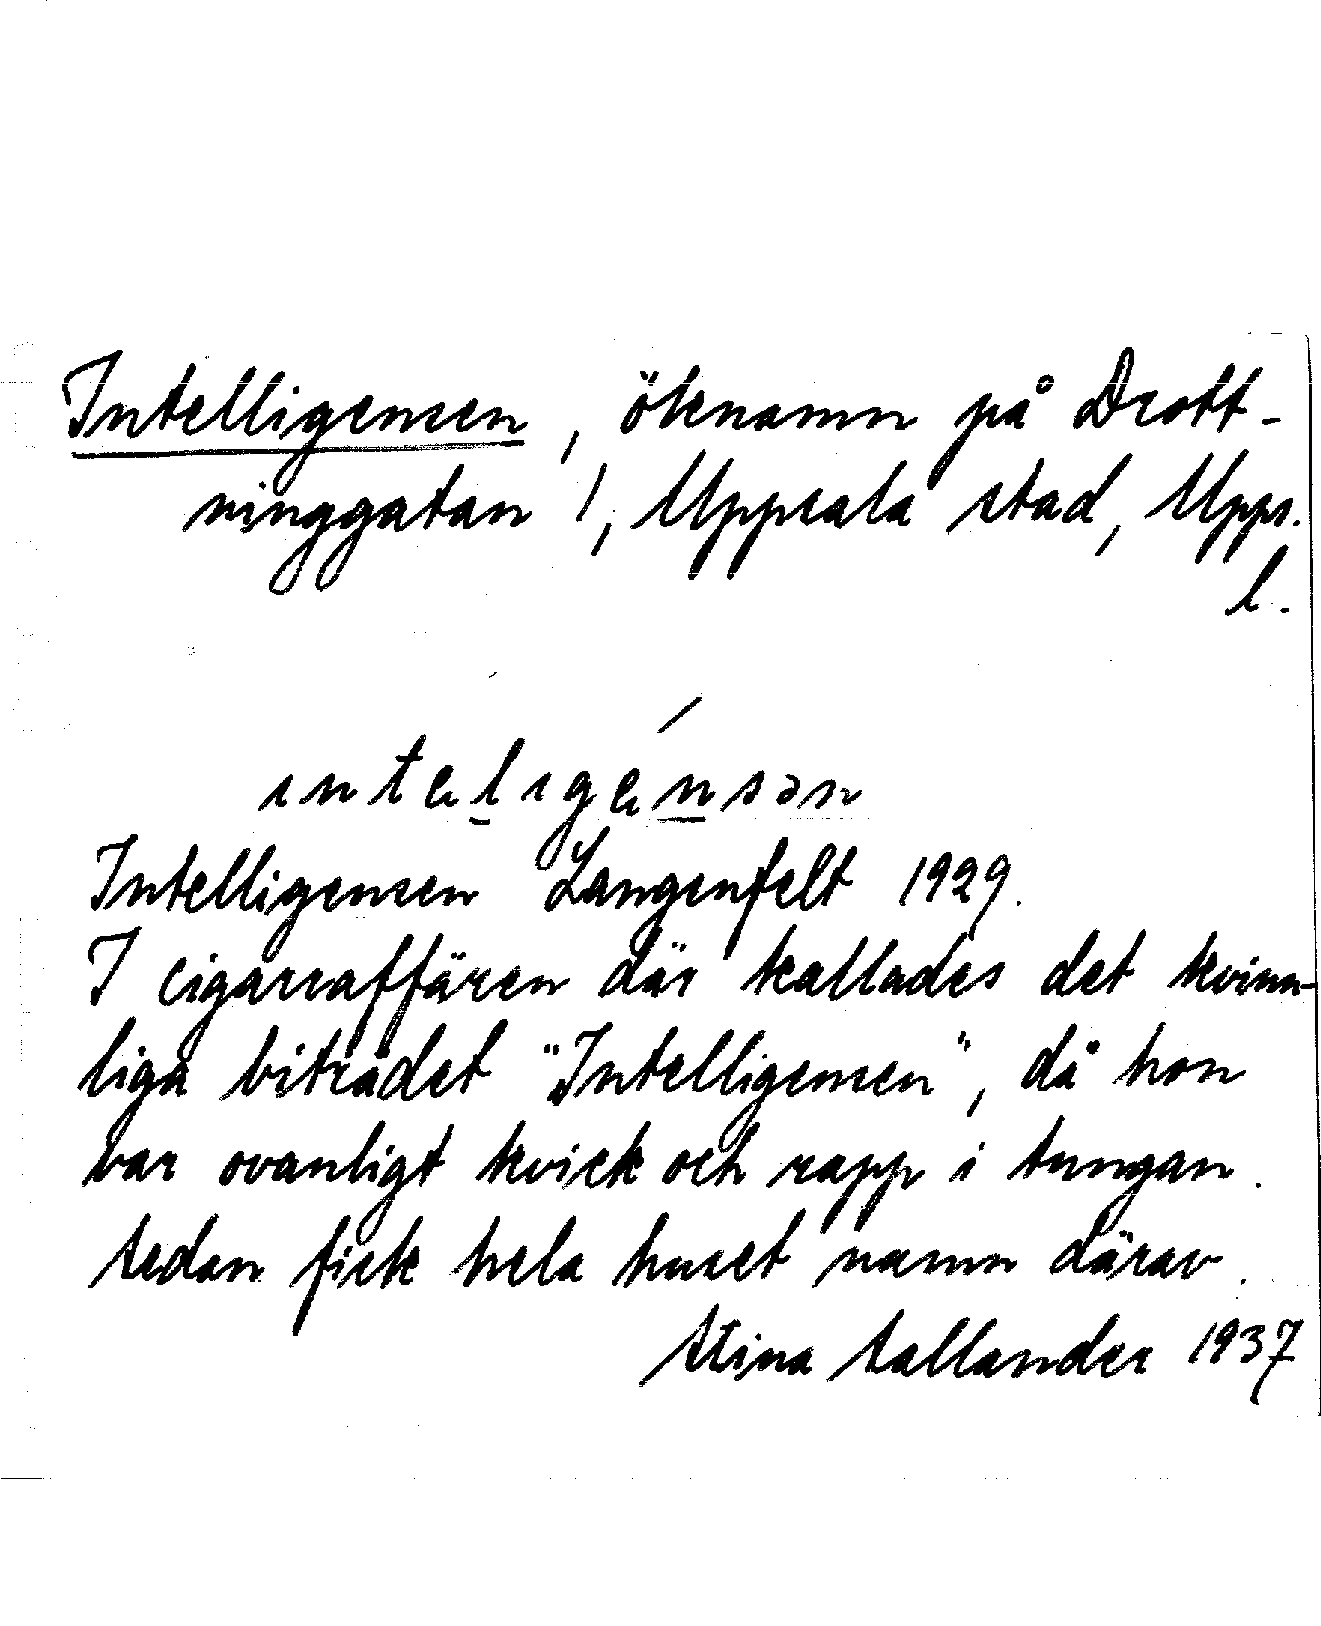 Intelligensen, öknamn på Drott-
ninggatan 1, Uppsala stad, Upps.
l.
ıntelıgénsən
Intelligensen Langenfelt 1929.
I cigarraffären där kallades det kvinn-
liga biträdet "Intelligensen", då hon
var ovanligt kvick och rapp i tungan.
Sedan fick hela huset namn därav.
Stina Sallander 1937